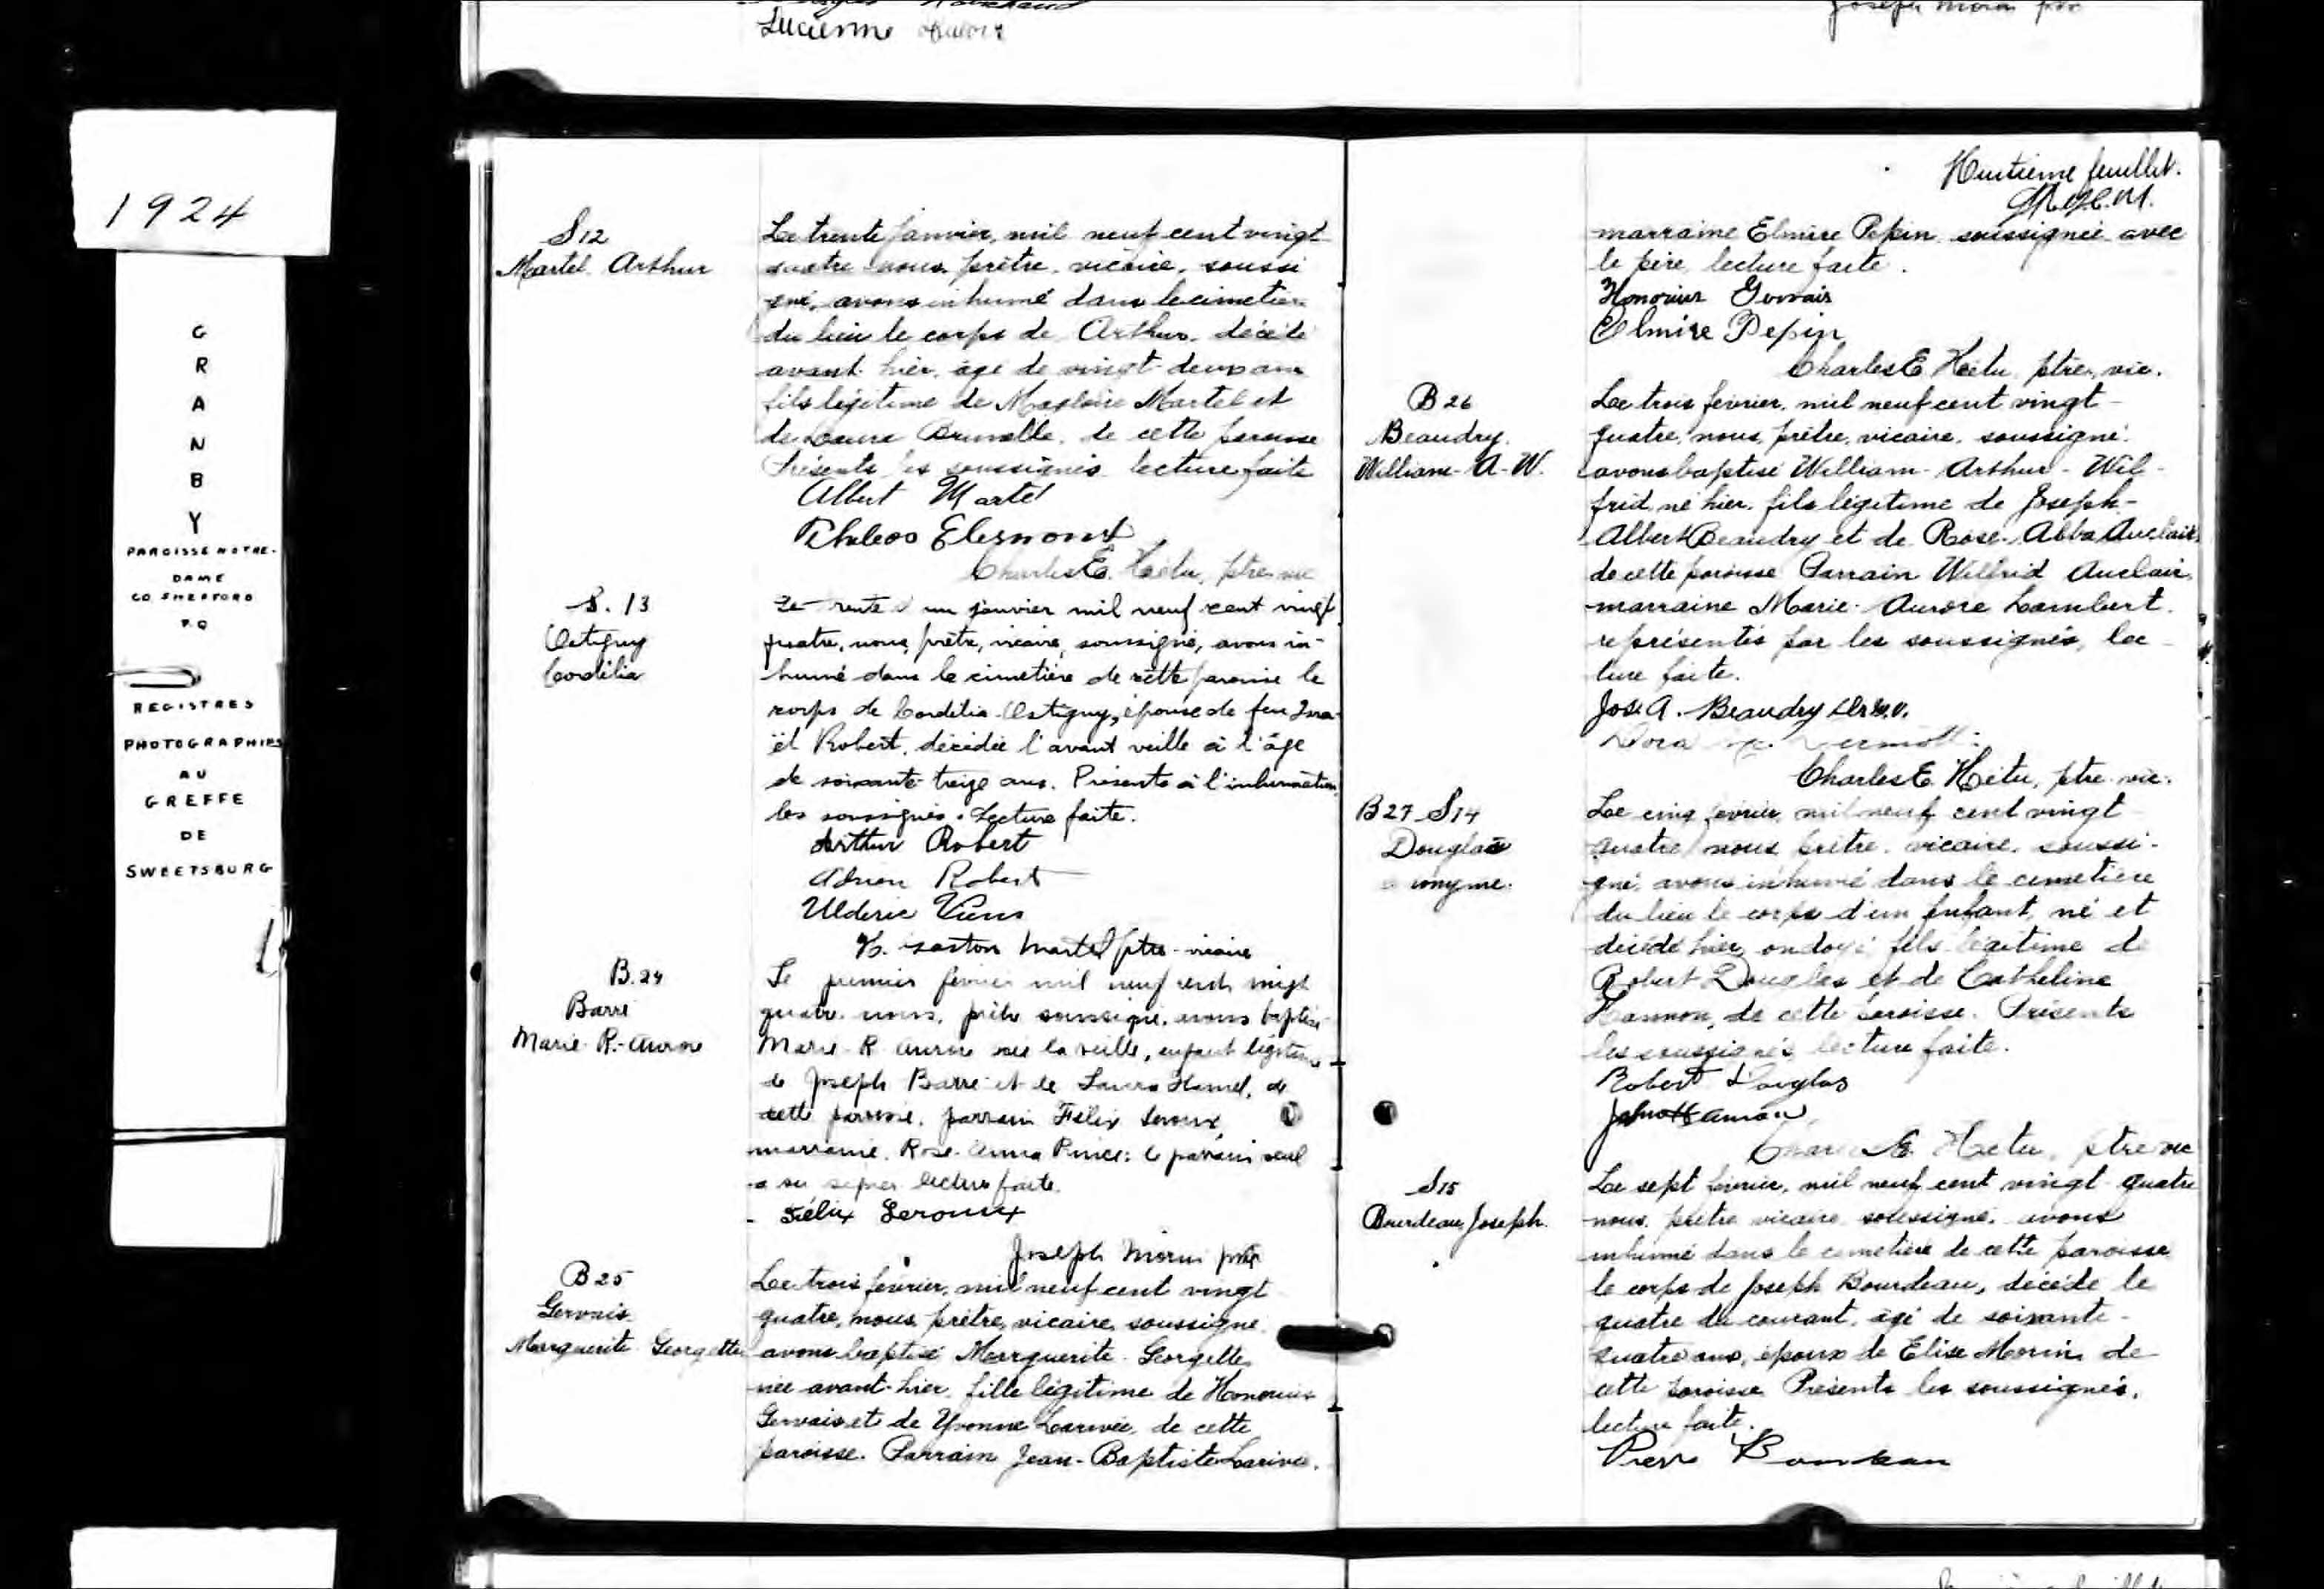 Lucienne
Joseph Morin ptre
1924
G
R
A
N
B
Y
PAROISSE NOTRE-
DAME
CO SHEFFORD
P.Q
REGISTRES
PHOTOGRAPHIES
AU
GREFFE
DE
SWEETSBURG
S12
Martel Arthur
Le trente janvier, mil neuf cent vingt
quatre nous, prêtre, vicaire, soussi
gné, avons inhumé dans le cimetière
du lieu le corps de Arthur, décédé
avant hier, âgé de vingt-deux ans
fils légitime de Magloire Martel et
de Laura Brunelle, de cette paroisse
Présents les soussignés lecture faite
Albert Martel
Charles E. Hétu, ptre vic
S. 13
Ostigny
Cordélia
Le trente et un janvier mil neuf cent vingt
quatre, nous, prêtre, vicaire, soussigné, avons in-
humé dans le cimetière de cette paroisse le
corps de Cordélia Ostigny, épouse de feu Isra-
ël Robert, décédée l'avant veille à l'âge
de soixante-treize ans. Présents à l'inhumation,
les soussignés. Lecture faite.
Arthur Robert
Adrien Robert
Ulderic Viens
H. Gaston Martel ptre-vicaire
B.24
Barré
Marie-R.-Aurore
Le premier février mil neuf cent vingt
quatre, nous, prêtre soussigné, avons baptisé
Marie-R. Aurore née la veille, enfant légitime
de Joseph Barré et de Laura Hamel, de
cette paroisse. parrain Félix Leroux,
marraine, Rose-Anna Prince: le parrain seul
a su signer lecture faite.
Félix Leroux
Joseph Morin ptre
B25
Gervais
Marguerite-Georgette
Le trois février, mil neuf cent vingt
quatre, nous, prêtre, vicaire, soussigné
avons baptisé Marguerite-Georgette,
née avant-hier, fille légitime de Honorius
Gervais et de Yvonne Larivée, de cette
paroisse. Parrain Jean-Baptiste Larivée,
Huitième feuillet.
marraine Elmire Pepin, soussignée avec
le père, lecture faite.
Honorius Gervais
Elmire Pepin
Charles E. Hétu, ptre, vic.
B 26
Beaudry.
William-A-W.
Le trois février, mil neuf cent vingt-
quatre, nous, prêtre, vicaire, soussigné,
avons baptisé William-Arthur-Wil-
frid, né hier, fils légitime de Joseph-
Albert Beaudry et de Rose-Alba Auclair,
de cette paroisse Parrain Wilfrid Auclair,
marraine Marie-Aurore Lambert.
représentés par les soussignés, lec-
ture faite.
Jos. A. Beaudry
Dora
Charles E. Hétu, ptre-vic.
B27 S14
Douglas
anonyme.
Le cinq février, mil neuf cent vingt
quatre, nous prêtre, vicaire, soussi-
gné, avons inhumé dans le cimetière
du lieu le corps d'un enfant, né et
décédé hier, ondoyé, fils légitime de
Robert Douglas et de Catheline
Hannon, de cette paroisse. Présents
les soussignés, lecture faite.
Robert Douglas
Charles E. Hétu, ptre vic
S15
Bourdeau, Joseph.
Le sept février, mil neuf cent vingt-quatre
nous, prêtre vicaire soussigné, avons
inhumé dans le cimetière de cette paroisse
le corps de Joseph Bourdeau, décédé le
quatre du courant, âgé de soixante-
quatre ans, époux de Elise Morin, de
cette paroisse Présents les soussignés,
lecture faite.
Pierre Bourdeau